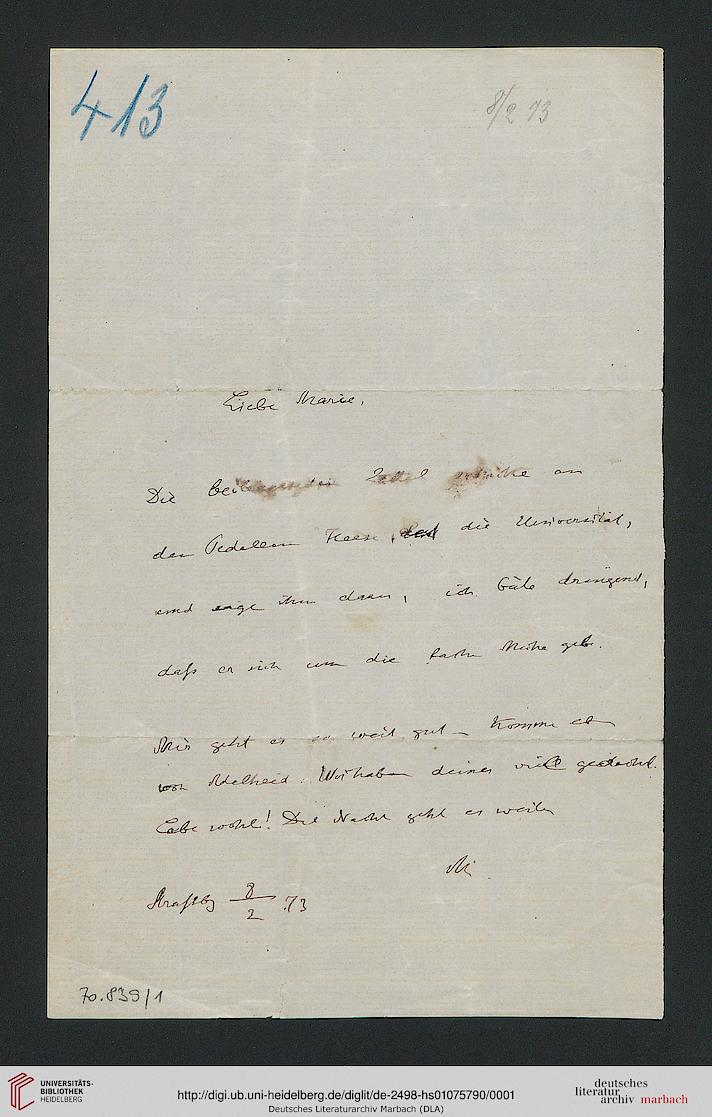 413
8/2 73
Liebe Marie,
Die Zettel schicke an
den Pedellen die Universität,
und sage ihm daran, ich bäte dringend,
daß er sich um die Sache Mühe gebe.
Mir geht es so weit gut. Komme eben
von Adelheid. Wir haben deiner viel gedacht.
Lebe wohl! Die Nacht geht es weiter
M
8/2 73
70.839/1
UNIVERSITÄTS-
BIBLIOTHEK
HEIDELBERG
http://digi.ub.uni-heidelberg.de/diglit/de-2498-hs01075790/0001
Deutsches Literaturarchiv Marbach (DLA)
deutsches
literatur
archiv marbach